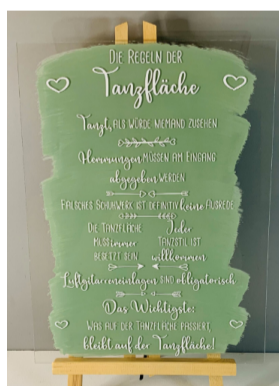 DIE REGELN DER
Tanzfläche
Tanzt, ALS WÜRDE NIEMAND ZUSEHEN
Hemmungen MÜSSEN AM EINGANG
abgegeben WERDEN
FALSCHES SCHUHWERK IST DEFINITIV keine AUSREDE
DIE TANZFLÄCHE
MUSS immer
BESETZT SEIN
Jeder
TANZSTIL IST
willkommen
Luftgitarreneinlagen SIND obligatorisch
Das Wichtigste:
WAS AUF DER TANZFLÄCHE PASSIERT,
bleibt auf der Tanzfläche!